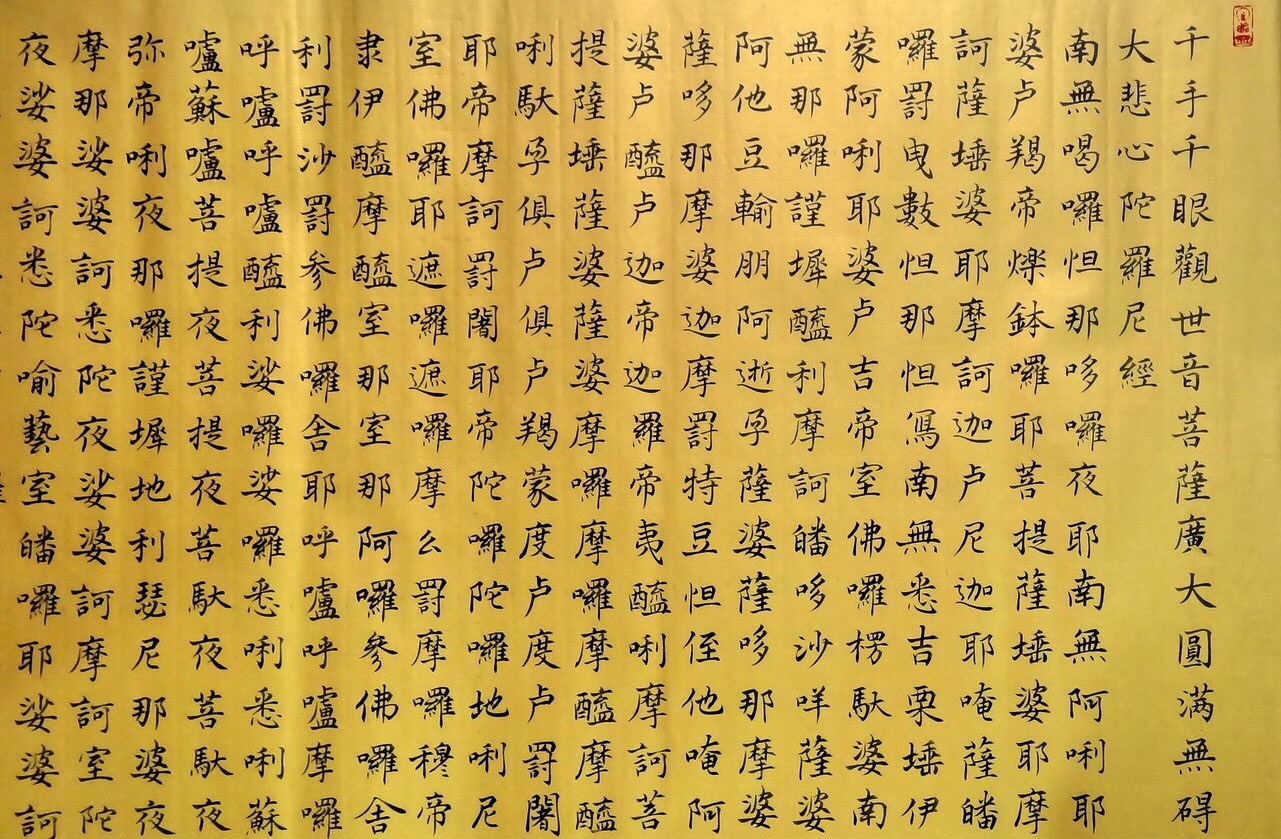 千手千眼觀世音菩薩廣大圓满無碍
大悲心陀羅尼經
南無喝囉怛那哆囉夜耶南無阿唎耶
婆卢羯帝爍鉢囉耶菩提薩埵婆耶摩
訶薩埵婆耶摩訶迦卢尼迦耶唵薩皤
囉罸曳數怛那怛寫南無悉吉栗埵伊
蒙阿唎耶婆卢吉帝室佛囉楞馱婆南
無那囉謹墀醯利摩訶皤哆沙咩薩婆
阿他豆輸朋阿逝孕薩婆薩哆那摩婆
薩哆那摩婆迦摩罸特豆怛侄他唵阿
婆卢醯卢迦帝迦羅帝夷醯唎摩訶菩
提薩埵薩婆薩婆摩囉摩囉摩醯摩醯
唎馱孕俱卢俱卢羯蒙度卢度卢罸闍
耶帝摩訶罸闍耶帝陀囉陀囉地唎尼
室佛囉耶遮囉遮囉摩么罸摩囉穆帝
隶伊醯摩醯室那室那阿囉參佛囉舍
利罸沙罸參佛囉舍耶呼嚧呼嚧摩囉
呼嚧呼嚧醯利娑囉娑囉悉唎悉唎蘇
嚧蘇嚧菩提夜菩提夜菩馱夜菩馱夜
弥帝唎夜那囉謹墀地利瑟尼那婆夜
摩那娑婆訶悉陀夜娑婆訶摩訶室陀
夜娑婆訶悉陀喻藝室皤囉耶娑婆訶